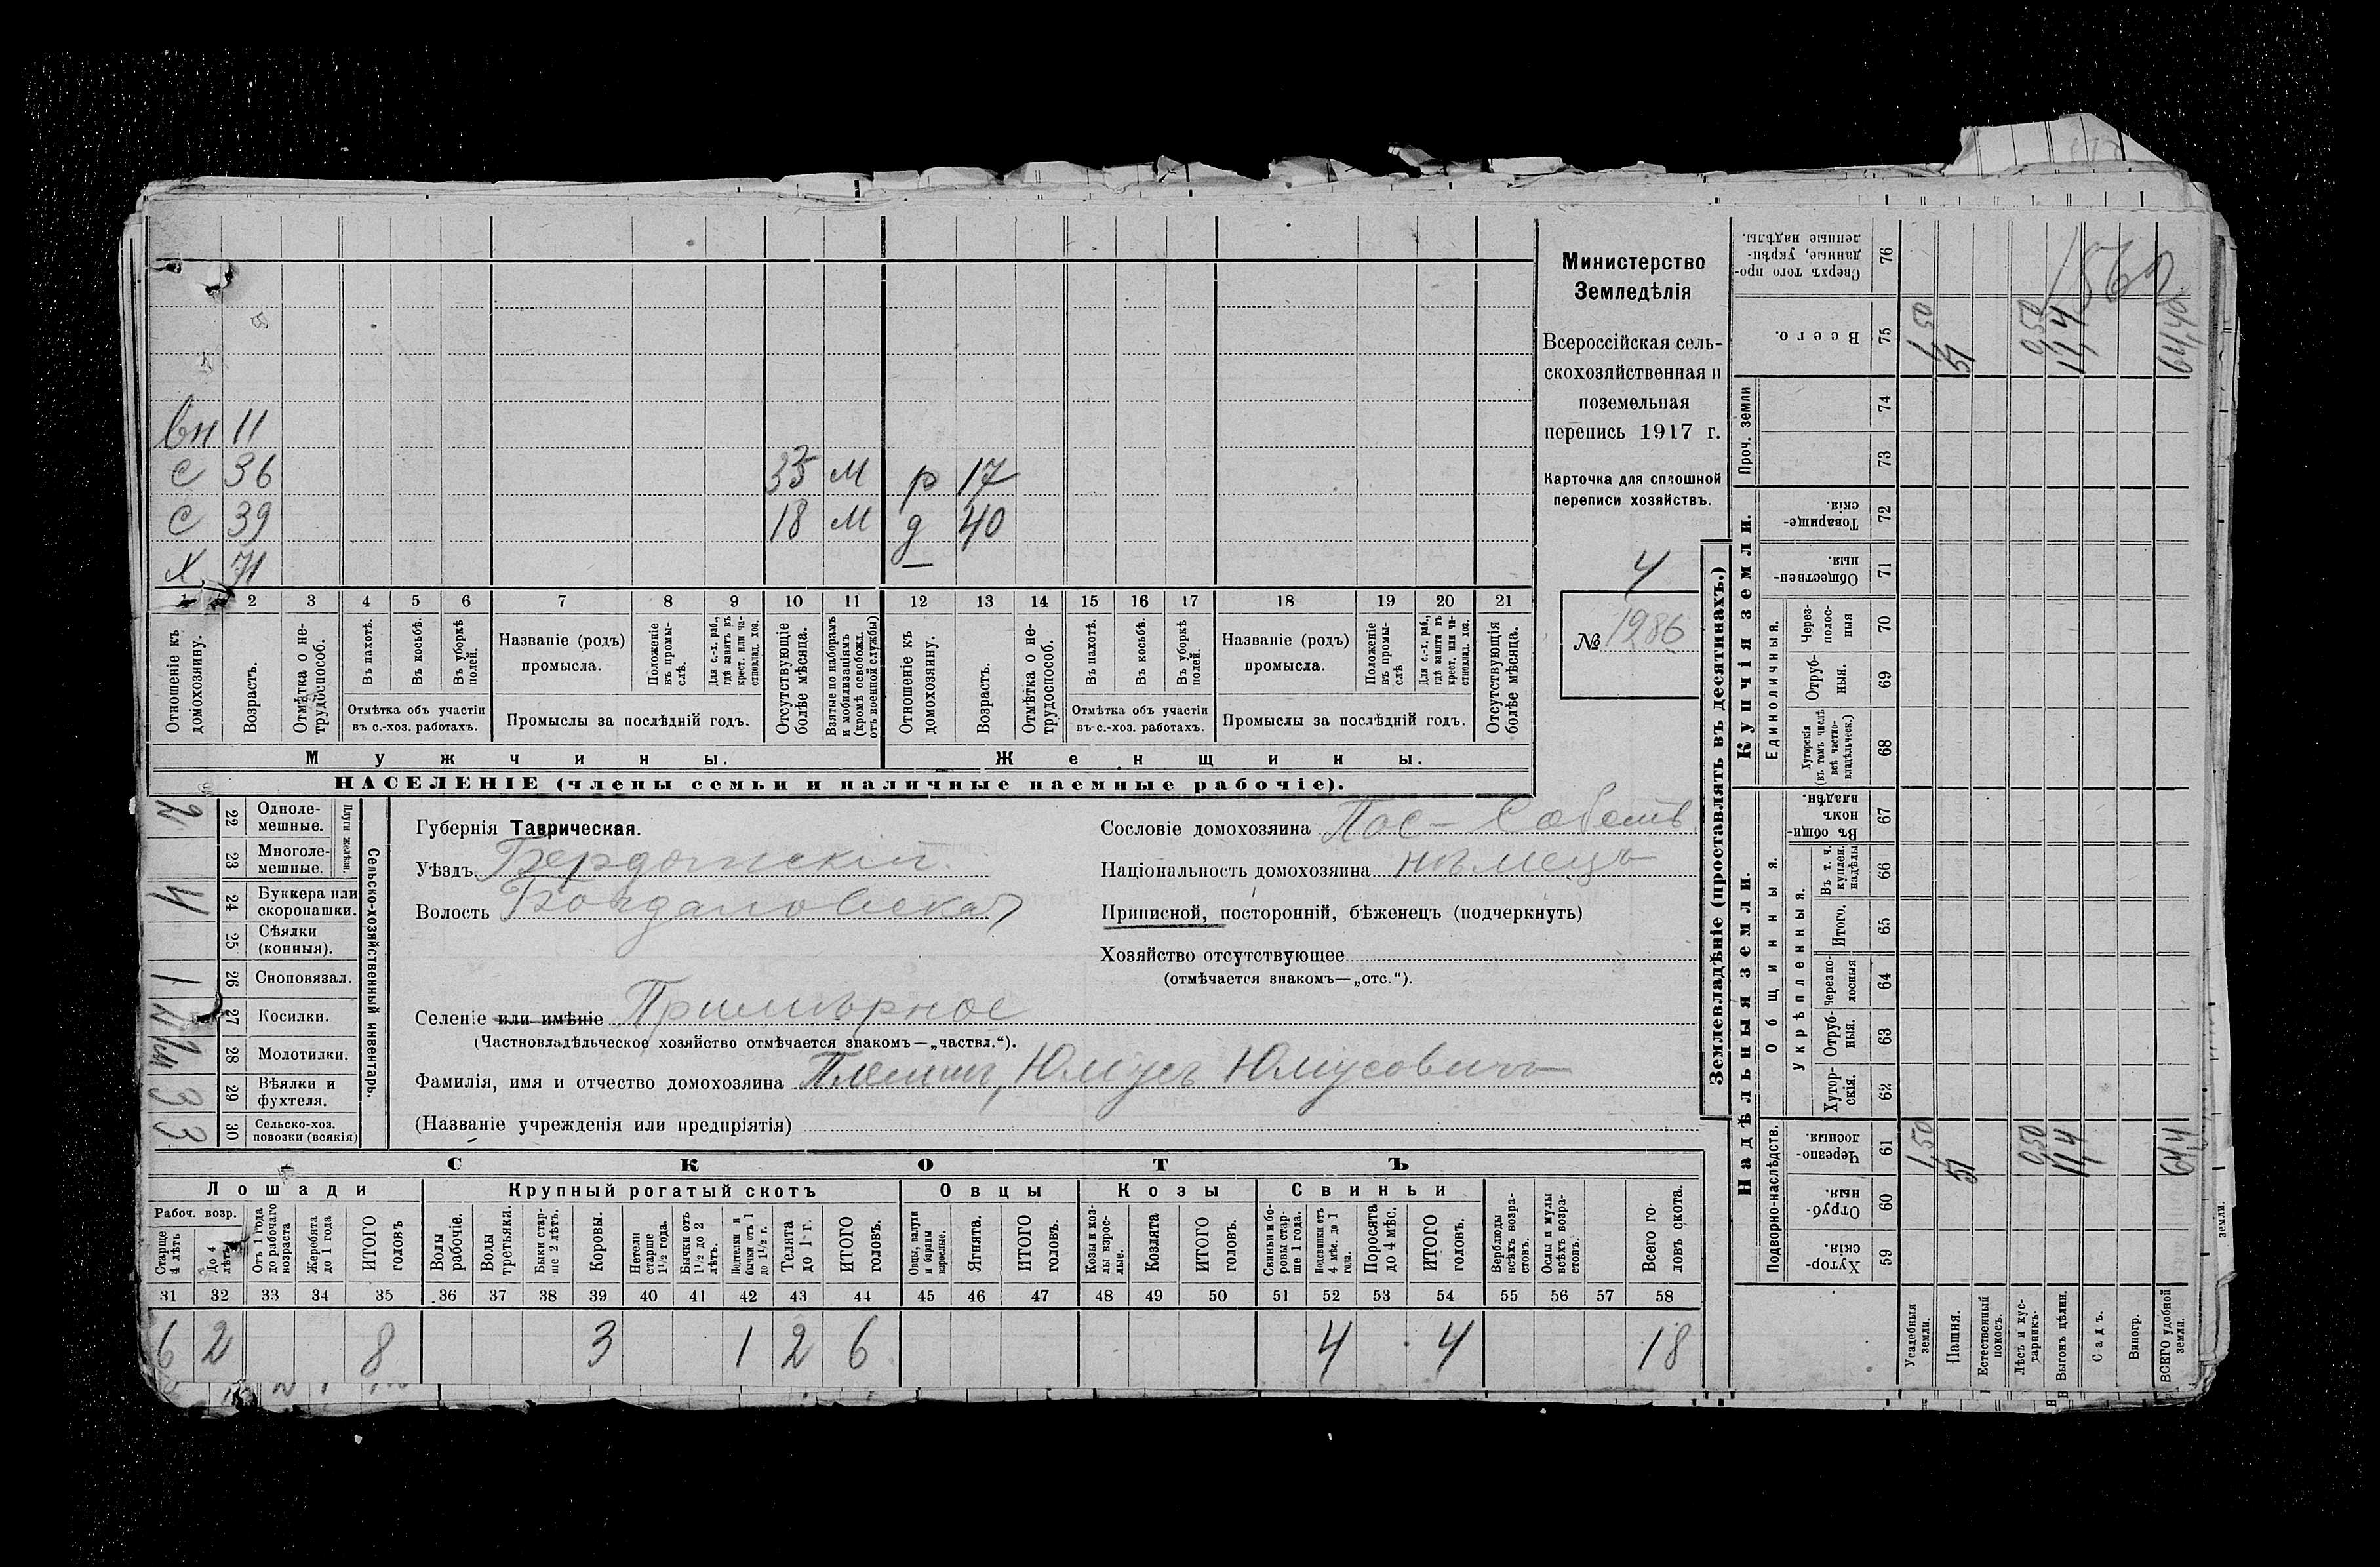 вн 11
с 36 33 м р 17
с 39 18 м д 40
х 71
1 2 3 4 5 6 7 8 9 10 11 12 13 14 15 16 17 18 19 20 21
Отношеніе къ домохозяину.
Возрастъ.
Отмѣтка о нетрудоспособ.
Въ пахотѣ.
Въ косьбѣ.
Въ уборкѣ полей.
Отмѣтка объ участіи въ с.-хоз. работахъ.
Названіе (родъ) промысла.
Положеніе въ промыслѣ.
Для с.-х. раб., гдѣ занятъ въ крест. или частновлад. хоз.
Промыслы за послѣдній годъ.
Отсутствующіе болѣе мѣсяца.
Взятые по наборамъ и мобилизаціямъ (кромѣ освобожд. отъ военной службы)
Отношеніе къ домохозяину.
Возрастъ.
Отмѣтка о нетрудоспособ.
Въ пахотѣ.
Въ косьбѣ.
Въ уборкѣ полей.
Отмѣтка объ участіи въ с.-хоз. работахъ.
Названіе (родъ) промысла.
Положеніе въ промыслѣ
Для с.-х. раб., гдѣ занята въ крест. или частновлад. хоз.
Промыслы за послѣдній годъ.
Отсутствующія болѣе мѣсяца.
Мужчины. Женщины.
НАСЕЛЕНІЕ (члены семьи и наличные наемные рабочіе).
Министерство
Земледѣлія
Всероссійская сель-
скохозяйственная и
поземельная
перепись 1917 г.
Карточка для сплошной
переписи хозяйствъ.
4
№ 1986
Сельско-хозяйственный инвентарь.
Плуги желѣзн.
2 22 Однолемешные.
23 Многолемешные.
4 24 Буккера или скоропашки.
25 Сѣялки (конныя).
1 26 Сноповязал.
27 Косилки.
28 Молотилки.
3 29 Вѣялки и фухтеля.
3 30 Сельско-хоз. повозки (всякія)
Губернія Таврическая.
Уѣздъ Бердянскій
Волость Богдановская
Сословіе домохозяина Пос-Собств
Національность домохозяина нѣмецъ
Приписной, посторонній, бѣженецъ (подчеркнуть)
Хозяйство отсутствующее
(отмѣчается знакомъ—„отс.“).
Селеніе или имѣніе Примѣрное
(Частновладѣльческое хозяйство отмѣчается знакомъ—„частвл.“).
Фамилія, имя и отчество домохозяина Юлусъ Юлусовичъ
(Названіе учрежденія или предпріятія)
СКОТЪ
Лошади Крупный рогатый скотъ Овцы Козы Свиньи
Рабоч. возр.
Старше 4 лѣтъ
До 4 лѣтъ
Отъ 1 года до рабочаго возраста
Жеребята до 1 года
ИТОГО головъ
Волы рабочіе.
Волы третьяки.
Быки старше 2 лѣтъ.
Коровы.
Нетели старше 1 1/2 года.
Бычки отъ 1 1/2 до 2 лѣтъ.
Подтелки и бычки отъ 1 до 1 1/2 г.
Телята до 1 г.
ИТОГО головъ.
Овцы, валухи и бараны взрослые.
Ягнята.
ИТОГО головъ.
Козы и козлы взрослые.
Козлята
ИТОГО головъ.
Свиньи боровы старше 1 года.
Подсвинки отъ 4 мѣс. до 1 года.
Поросята до 4 мѣс.
ИТОГО головъ.
Верблюды всѣхъ возрастовъ.
Ослы и мулы всѣхъ возрастовъ.
Всего головъ скота.
31 32 33 34 35 36 37 38 39 40 41 42 43 44 45 46 47 48 49 50 51 52 53 54 55 56 57 58
6 2 8 3 1 2 6 4 4 18
Землевладѣніе (проставлять въ десятинахъ.)
Надѣльныя земли. Купчія земли. Проч. земли
Подворно-наслѣдств.
Общинныя.
Укрѣпленныя.
Единоличныя.
Хуторскія. 59
Отрубныя. 60
Черезполосныя. 61
Хуторскія. 62
Отрубныя. 63
Черезполосныя 64
Итого. 65
Въ т. ч. куплен. надѣлы 66
Въ общинномъ владѣн. 67
Хуторскія (въ томъ числѣ всѣ частновладѣльческ.) 68
Отрубныя. 69
Черезполосныя 70
Общественныя. 71
Товарищескія. 72
73
74
Всего. 75
Сверхъ того проданные, укрѣпленные надѣлы. 76
Усадебныя земли. 1,50 1,50
Пашня. 51 51
Естественный покосъ.
Лѣсъ и кустарникъ. 0,50 0,50
Выгонъ цѣлин. 11,4 11,4
Садъ.
Виногр.
ВСЕГО удобной земли. 64,4 64,40
земли.